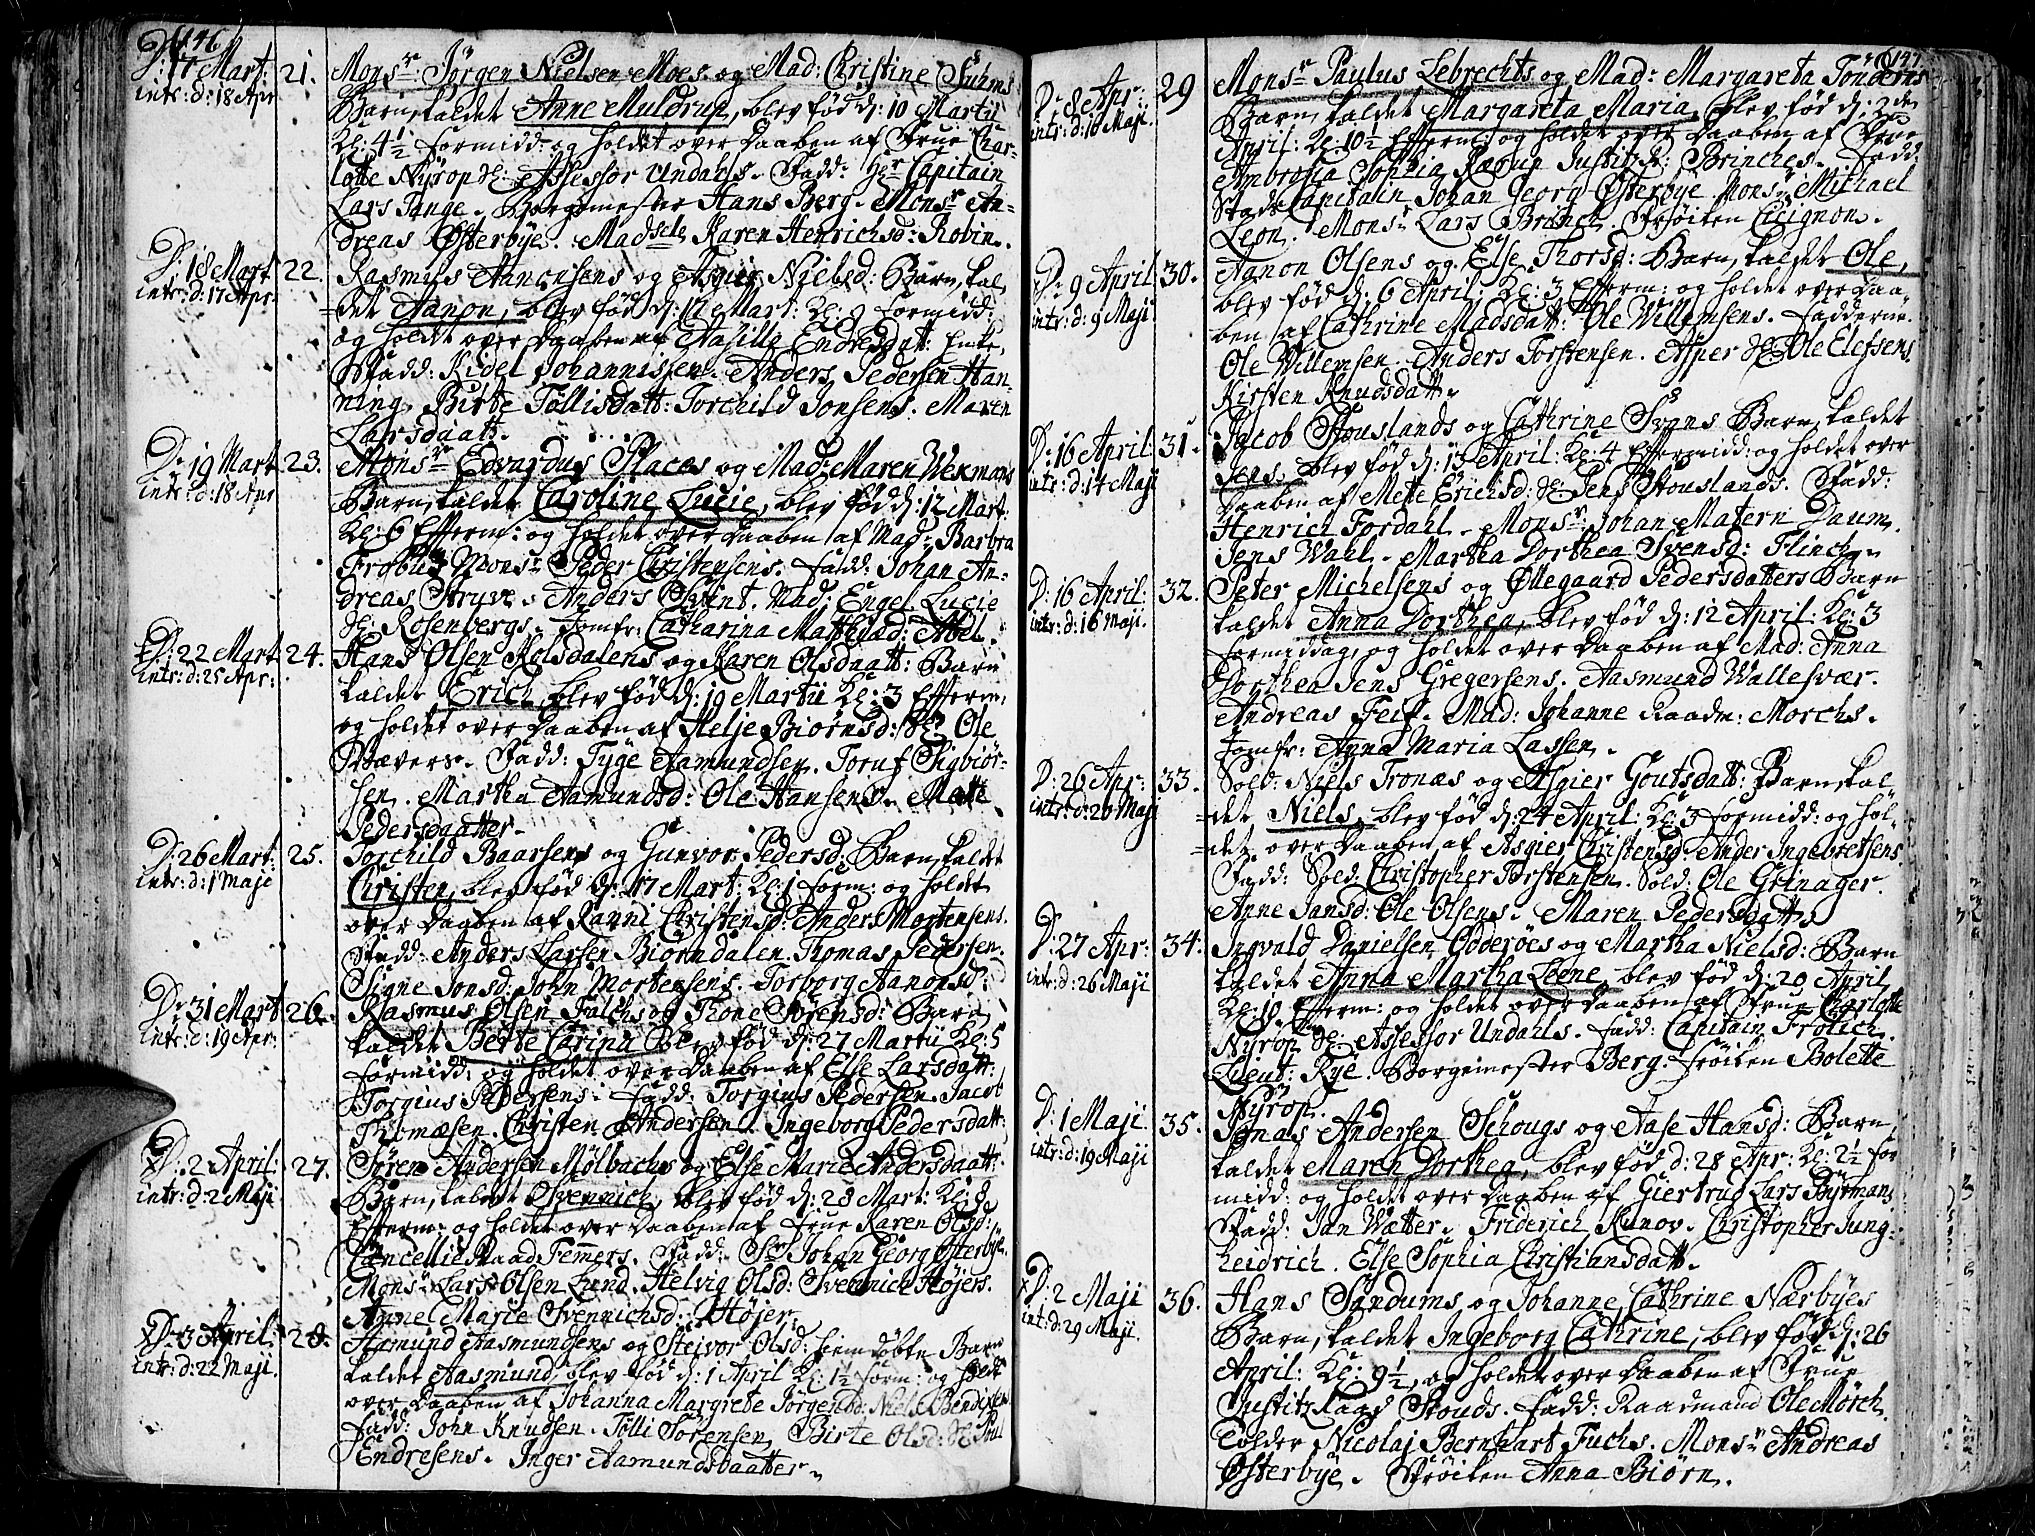 146
D: 17 Mart: 21. Monsr: Jørgen Nielsen Moes og Mad: Christine Suhms
intr: d: 18 Apr Barn, kaldet Anne Muldrup, blev fød d: 10 Martii
Kl: 4½ formidd: og holdet over Daaben af Frue Char-
lotte Nyrop Hr: Assessor Undahls. Fadd: Hr Capitain
Lars Tange. Borgemester Hans Berg. Monsr An-
dreas Østerbye. Madsele Karen Henrichsd: Robin.
D: 18 Mart 22. Rasmus Aanonsens og Asgier Nielsd: Barn, kal
intr: d: 17 Apr: =det Aanon, blev fød d: 17 Mart: Kl: 9 formidd:
og holdt over Daaben af Aasille Endresdatt: Enke,
Fadd: Kidel Johannissen. Anders Pedersen Han-
ning. Birte Tollisdatt: Torchild Jonsens. Maren
Larsdaatt.
D: 19 Mart 23. Monsr Edvardus Places og Mad: Maren Wexmans
intr: d: 18 Apr Barn, kaldet Caroline Lucie, blev fød d: 12 Mart.
Kl: 6 Efterm: og holdet over Daaben af Mad: Barbra
Monsr Peder Christensens. Fadd: Johan An-
dreas Stryve. Anders Qvint. Mad: Engel Lucie
Rosenbergs. Jomfr: Catharina Matthiæd: Abel.
D: 22 Mart 24. Hans Olsen Rolsdalens og Karen Olsdaatt: Barn
intr: d: 25 Apr: kaldet Erich, blev fød d: 19 Martii Kl: 3 Efterm,
og holdet over Daaben af Helje Biørnsd: Ole
Bævers. Fadd: Tyge Aamundsen. Toruf Sigbiør-
sen. Martha Aamundsd: Ole Hansens. Mette
Pedersdaatter.
D: 26 Mart: 25. Torchild Baarsens og Gunvor Pedersd: Barn, kaldet
intr: d: 1 Maje Christen, blev fød d: 17 Mart: Kl: 1 form: og holdet
over Daaben af Ranni Christensd: Anders Mortensens.
Fadd: Anders Larsen Biorndalen. Thomas Pedersen
Signe Jonsd: John Mortensens. Torborg Aanonsd:
D: 31 Mart 26. Rasmus Olsen Falchs og Thone Sørensd: Barn,
intr: d: 19 Apr: kaldet Berte Carina blev fød d: 27 Martii Kl: 5
formidd: og holdet over Daaben af Else Larsdatt:
Torgius Pedersens. Fadd: Torgius Pedersen. Jacob
Thomæsen. Christen Andersen. Ingeborg Pedersdatt:
D: 2 April: 27. Søren Andersen Mølbachs og Else Marie Andersdaatt:
intr: d: 2 Maji Barn, kaldet Svennich, blev fød d: 28 Mart: Kl: 9
Efterm: og holdet over Daaben af Frue Karen Olsd:
CancellieRaad Femmers. Fadd: Sr Johan Georg Østerbye.
Monsr Lars Olsen Lund. Helvig Olsd: Svennich Højers.
Anne Marie Svennichsd: Højer.
D: 3 April: 28. Aamund Aasmundsens og Steivor Olsd: hiemdøbte Barn
intr: d: 22 Maji. kaldet Aasmund, blev fød d: 1 April Kl: 1½ form: og holdt
over Daaben af Johanna Margrete Jørgensd: Niels Bendixens
Fadd: John Knudsen. Tølli Sørensen. Birte Olsd: Poul
Endresens. Inger Aamundsdaatter.
147
D: 8 Apr: 29 Monsr Paulus Lebrechts og Mad: Margareta Tonders
intr: d: 10 Maji. Barn, kaldet Margareta Maria, blev fød d: 2den
April: Kl: 10½ Efterm: og holdet over Daaben af Frue
Ambrosia Sophia Justitzr: Brinches. Fadd:
StadsCapitain Johan Georg Østerbye. Monsr Michael
Leon. Monsr Lars Brinch. Frøiken Cicignon.
D: 9 April 30. Aanon Olsens og Else Thorsd: Barn, kaldet Ole,
intr: d: 9 Maji blev fød d: 6 April Kl: 3 Efterm: og holdet over Daa-
ben af Cathrine Madsdatt: Ole Willemsens. Fadderne.
Ole Willemsen. Anders Torstensen. Asper Ole Elefsens.
Kirsten Knudsdatt.
D: 16 April: 31. Jacob Stouslands og Cathrine Svans Barn, kaldet
intr: d: 14 Maji Jens, blev fød d: 13 April: Kl: 4 Eftermidd: og holdet over
Daaben af Mette Erichsd: Jens Stouslands. Fadd:
Henrich Fordahl. Monsr: Johan Matern Daum.
Jens Wahl. Martha Dorthea Svensd: Flinch.
D: 16 April: 32. Peter Michelsens og Øllegaard Pedersdatters Barn
intr: d: 16 Maji. kaldet Anna Dorthea, blev fød d: 12 April: Kl: 3
formiddag, og holdet over Daaben af Mad: Anna
Dorthea Jens Gregersens. Aasmund Wallesvær.
Andreas Feif. Mad: Johanne Raadm: Morchs.
Jomfr: Anna Maria Lassen.
D: 26 Apr: 33. Sold: Niels Tronæs og Asgier Goutsdatt: Barn, kal-
intr: d: 26 Maji =det Niels, blev fød d: 24 April: Kl: 3 formidd: og hol-
=det over Daaben af Asgier Christensd: Ander Ingebretsens
Fadd: Sold: Christopher Torstensen. Sold: Ole Grinager.
Anne Jansd: Ole Olsens. Maren Pedersdatt.
D: 27 Apr: 34. Ingvald Danielsen Odderøes og Martha Nielsd: Barn
intr: d: 26 Maji kaldet Anna Martha Leene, blev fød d: 20 April
Kl: 10 Efterm: og holdet over Daaben af Frue Charlotte
Nyrop Assessor Undahls. Fadd: Capitain Frolich.
Lieut: Rye. Borgemester Berg. Frøiken Bolette
Nyrop.
D: 1 Maji 35. Jonas Andersen Schougs og Aase Hansd: Barn,
intr: d: 19 Maji kaldet Maren Dorthea, blev fød d: 28 Apr: Kl: 2½ for
midd: og holdet over Daaben af Giertrud Lars Byrmans
Fadd: Jan Watter. Friderich Kunov. Christopher Jung-
heidrich. Else Sophia Christiansdatt.
D: 2 Maji 36. Hans Sandums og Johanne Cathrine Nærbyes
int: d: 29 Maji. Barn, kaldet Ingeborg Cathrine, blev fød d: 26
April: Kl: 9½, og holdet over Daaben af Frue
JustitzRaad Stouds. Fadd: Raadmand Ole Mørch.
Tolder Nicolaj Bernhart Fuchs. Monsr Andreas
Østerbye. Frøiken Anna Biørn.